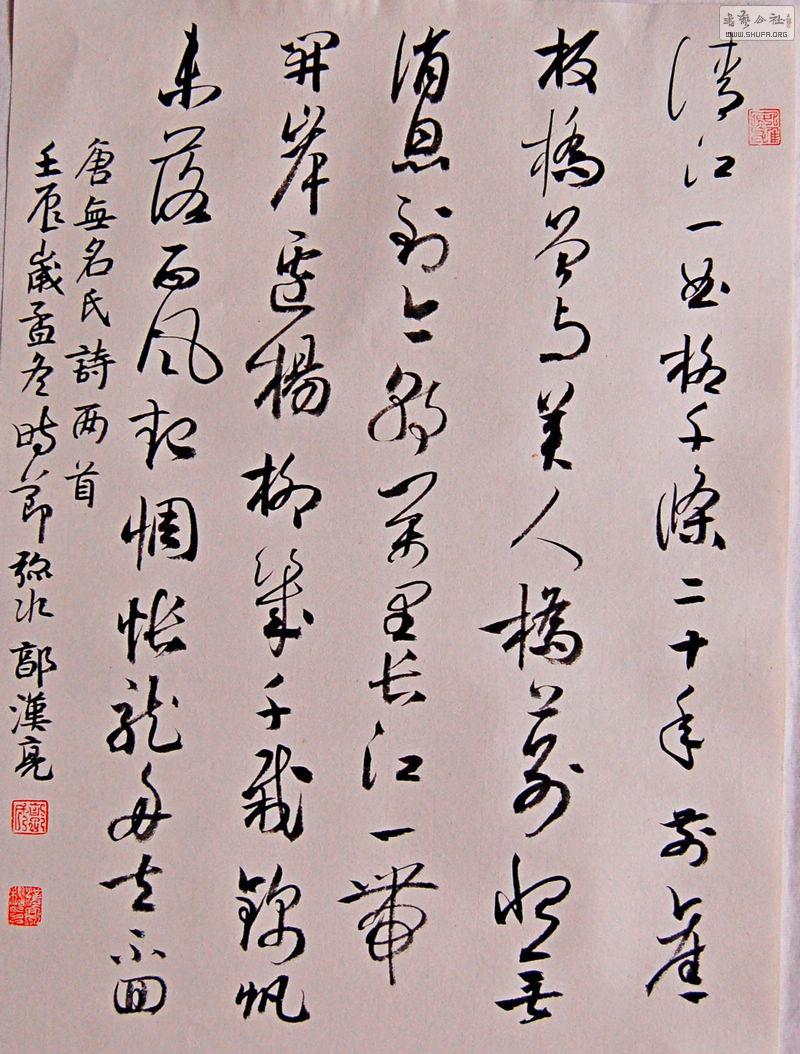 书艺公社
WWW.SHUFA.ORG
清江一曲柳千條二十年前舊
板橋曾与美人橋上别恨無
消息到今朝萬里长江一帶
開岸邊楊柳幾千栽錦帆
未落西風起惆悵龍舟去不回
唐無名氏詩两首
壬辰歲孟冬時節弥水郭漢亮